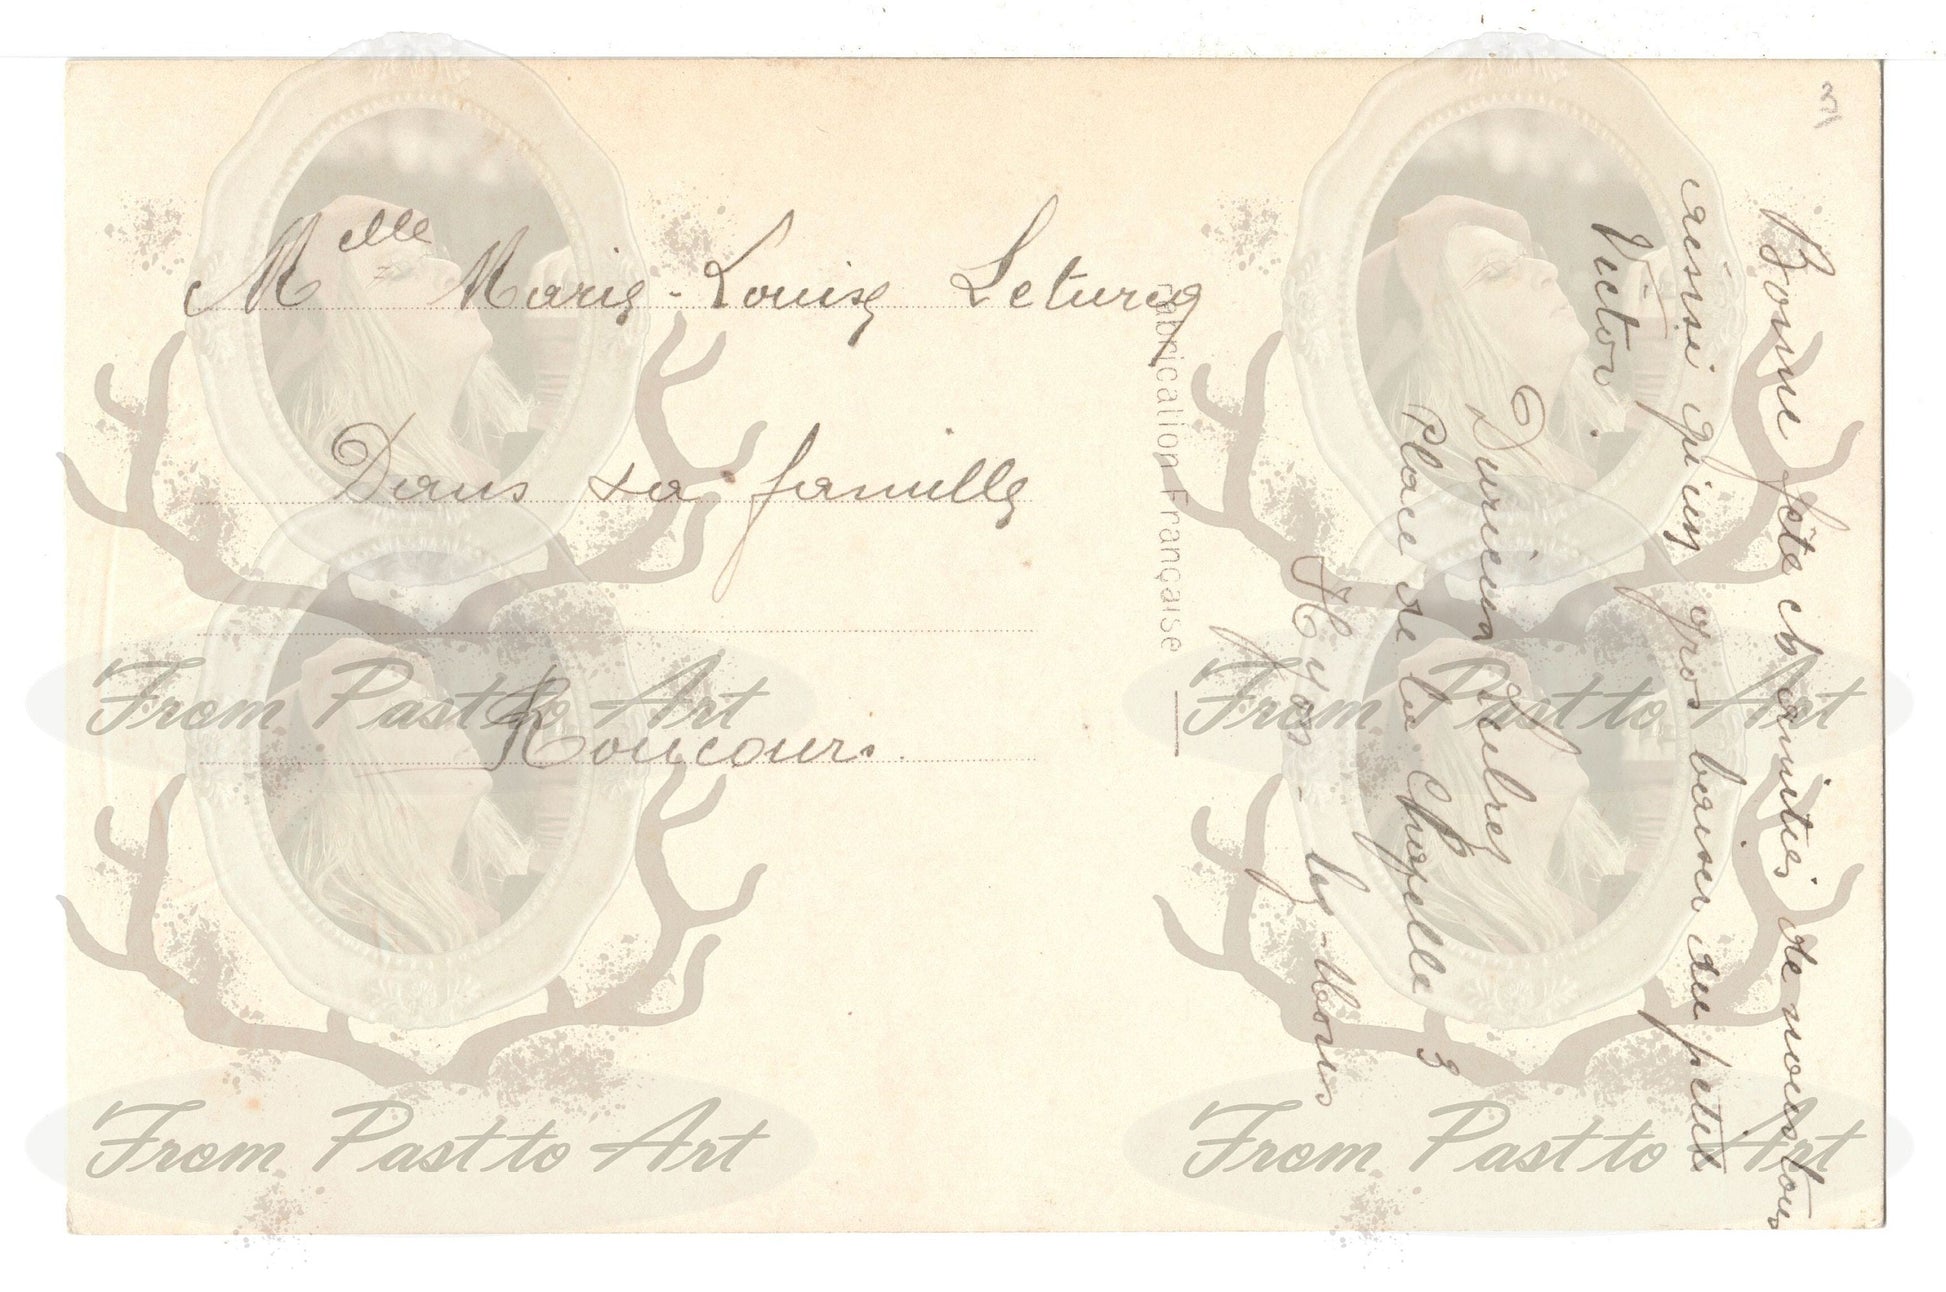 Melle Marie-Louise Leturcq
Dans sa famille
Roucourt
Fabrication Française
Bonne fête et amitiés de nous tous
ainsi qu'un gros baiser du petit
Victor
Place de la Chapelle 3
Hyon-lez-Mons
3
From Past to Art
From Past to Art
From Past to Art
From Past to Art